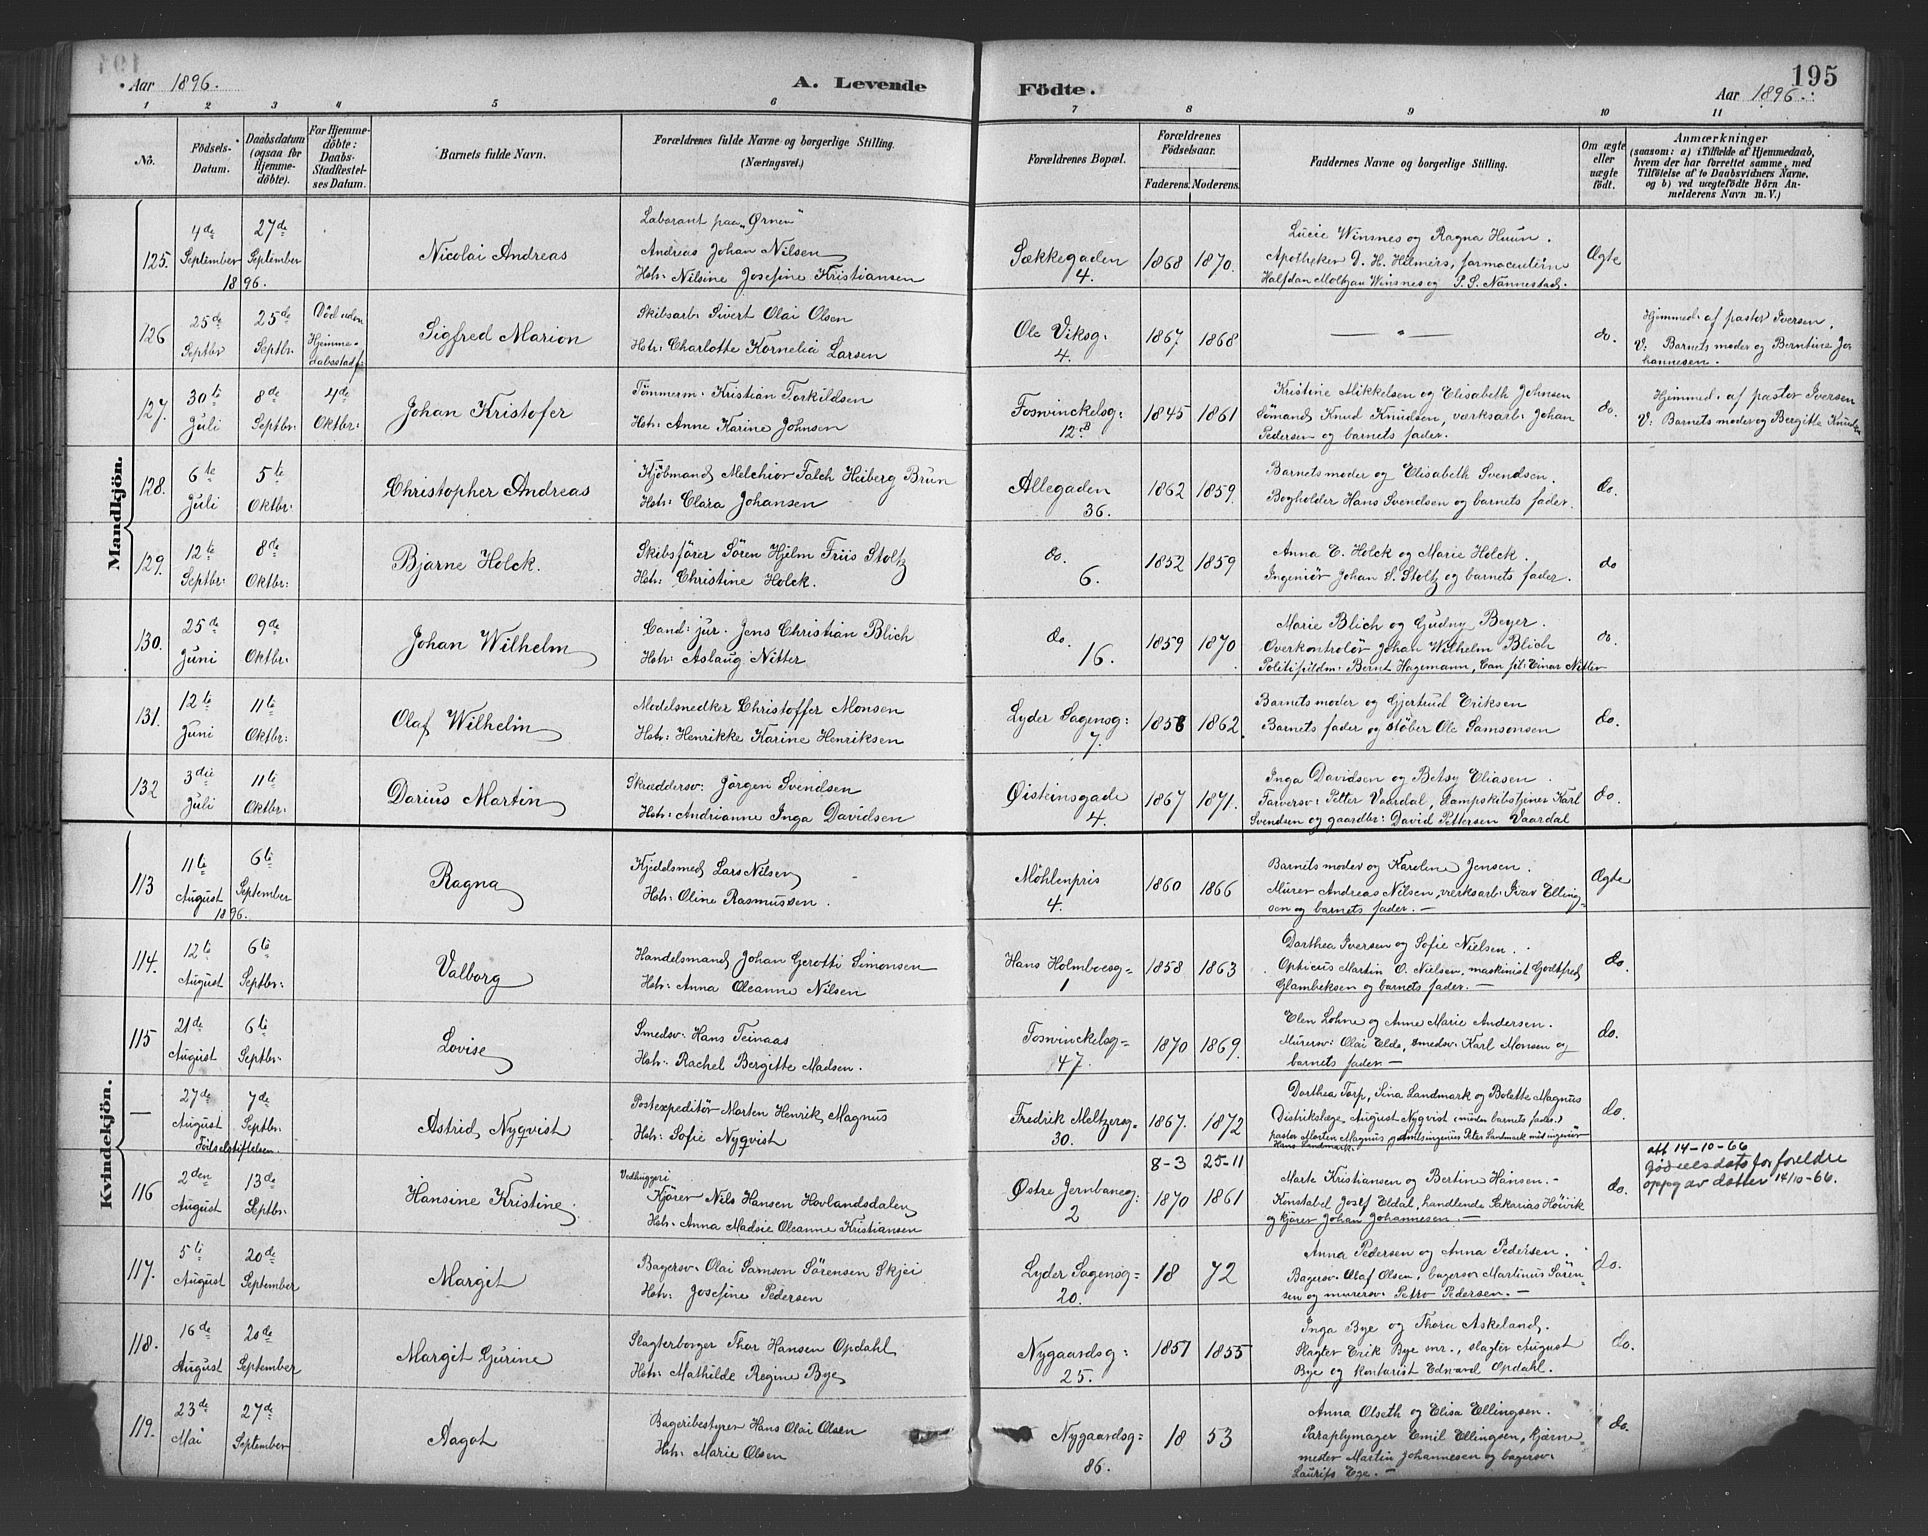 Aar 1896.
A. Levende
Födte.
195
Aar 1896.
1 2 3 4 5 6 7 8 9 10 11
No.
Födsels-Datum.
Daabsdatum (ogsaa for Hjemmedöbte).
For Hjemmedöbte: Daabs-Stadfestelses Datum.
Barnets fulde Navn.
Forældrenes fulde Navne og borgerlige Stilling. (Næringsvei.)
Forældrenes Bopæl.
Forældrenes Födselsaar.
Faderens. Moderens.
Faddernes Navne og borgerlige Stilling.
Om ægte eller uægte födt.
Anmærkninger
(saasom: a) i Tilfælde af Hjemmedaab, hvem der har forrettet samme, med Tilföielse af to Daabsvidners Navne, og b) ved uægtefödte Börn Anmelderens Navn m.V.)
Mandkjön.
125. 4de September 1896. 27de September
Nicolai Andreas
Laborant paa "Ørnen"
Andreas Johan Nilsen
Hstr: Nilsine Josefine Kristiansen
Sækkegaden 4.
1868 1870.
Lucie Winsnes og Ragna Huun.
Apotheker D. H. Hilmers, farmaceuterne
Halfdan Moltzau Winsnes og S. S. Nannestad.
Ægte
126 25de Septbr 25de Septbr. Död uden Hjemmedaabsstadf:
Sigfred Marion
Skibsarb. Sivert Olai Olsen
Hstr: Charlotte Kornelia Larsen
Ole Viksg: 4.
1867 1868
— " —
do.
Hjemmed. af pastor Iversen.
V: Barnets moder og Berntine Johannesen.
127. 30te Juli 8de Septbr. 4de Oktbr:
Johan Kristofer
Tömmerm. Kristian Torkildsen
Hstr: Anne Karine Johnsen
Fosvinckelsg: 12.B
1845 1861
Kristine Mikkelsen og Elisabeth Johnsen
Sömand Knud Knudsen, værksarb. Johan
Pedersen og barnets fader.
do.
Hjemmed. af pastor Iversen
V: Barnets moder og Bergitte Knudsen
128. 6te Juli 5te Oktbr:
Christopher Andreas
Kjöbmand Melchior Falch Heiberg Brun
Hstr: Clara Johansen
Allegaden 36.
1862 1859.
Barnets moder og Elisabeth Svendsen.
Bogholder Hans Svendsen og barnets fader.
do.
129. 12te Septbr: 8de Oktbr:
Bjarne Holck.
Skibsförer Sören Hjelm Friis Stoltz
Hstr: Christine Holck.
do. 6.
1852 1859
Anna E. Holck og Marie Holck.
Ingeniör Johan S. Stoltz og barnets fader.
do
130. 25de Juni 9de Oktbr:
Johan Wilhelm
Cand: jur. Jens Christian Blich
Hstr: Aslaug Nitter
do. 16.
1859 1870
Marie Blich og Gudny Beyer.
Overkontrolör Johan Wilhelm Blich
Politifuldm: Bernt Hagemann, Can fil: Einar Nitter
do.
131. 12te Juni 11te Oktbr:
Olaf Wilhelm
Modelsnedker Christoffer Monsen
Hstr: Henrikke Karine Henriksen
Lyder Sagensg: 7.
1858 1862.
Barnets moder og Gjertrud Eriksen
Barnets fader og stöber Ole Samsonsen
do.
132 3die Juli 11te Oktbr:
Darius Martin
Skræddersv: Jörgen Svendsen
Hstr: Andrianne Inga Davidsen
Øisteinsgade 4.
1867 1871.
Inga Davidsen og Betsy Eliasen.
Farversv: Petter Vaardal, Dampskibstjener Karl
Svendsen og gaardbr: David Pettersen Vaardal
do.
Kvindekjön.
113 11te August 1896. 6te September
Ragna
Kjedelsmed Lars Nilsen
Hstr: Oline Rasmussen.
Möhlenpris 4.
1860 1866
Barnets moder og Karoline Jensen.
Murer Andreas Nilsen, værksarb: Ivar Ellingsen og barnets fader. —
Ægte
114. 12te August 6te Septbr:
Valborg
Handelsmand Johan Gerotti Simonsen
Hstr: Anna Oleanne Nilsen
Hans Holmboesg= 1
1858 1863
Dorthea Iversen og Sofie Nielsen.
Opticus Martin O. Nielsen, maskinist Godtfred
Glambeksen og barnets fader. —
do.
115 21de August 6te Septbr.
Lovise
Smedsv: Hans Teinaas
Hstr: Rachel Bergitte Madsen.
Fosvinckelsg= 47.
1870 1869.
Elen Lohne og Anne Marie Andersen.
Murersv: Olai Elde, smedsv: Karl Monsen og
barnets fader. —
do.
— 27de August 7de Septbr. Födselstiftelsen.
Astrid Nyqvist
Postexpeditör Morten Henrik Magnus
Hstr: Sofie Nyqvist
Fredrik Meltzersg= 30.
1867. 1872
Dorthea Torp, Sina Landmark og Bolette Magnus
Distrikslæge August Nyqvist (inden barnets fader)
pastor Morten Magnus Hans Landmark.
do.
116 2den August 13de Septbr.
Hansine Kristine
Vedhuggeri
Kjörer Nils Hansen Hovlandsdalen
Hstr: Anna Madsie Oleanne Kristiansen
Østre Jernbaneg: 2
8-3 25-11
1870 1861
Marte Kristiansen og Bertine Hansen. —
Konstabel Josef Eldal, handlende Sakarias Höivik
og kjörer Johan Johannesen. —
do.
att 14-10-66
födselsdato for foreldre
oppg av datter 14/10-66.
117. 5te August 20de September
Margit
Bagersv. Olai Samson Sörensen Skjei
Hstr: Josefine Pedersen
Lyder Sagensg= 20.
18 72
Anna Pedersen og Anna Pedersen.
Bagersv. Olaf Olsen, bagersv Martinus Sörensen og murersv. Petro Pedersen. —
do.
118. 16de August 20de September
Margit Gurine
Slagterborger Thor Hansen Opdahl
Hstr: Mathilde Regine Bye
Nygaardsg: 25.
1857 1855
Inga Bye og Thora Askeland.
Slagter Erik Bye snr., slagter August
Bye og kontorist Edvard Opdahl.
do.
119. 23de Mai 27de September
Aagot
Bageribestyrer Hans Olai Olsen
Hstr: Marie Olsen
Nygaardsg= 86.
18 53
Anna Olseth og Elisa Ellingsen.
Paraplymager Emil Ellingsen, kjörnemester Martin Johannesen og bagersv.
Laurits Ege. —
do.